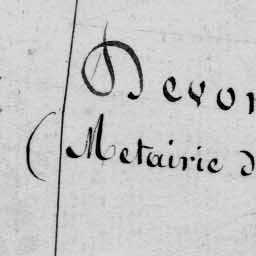 Devor
(Metairie d